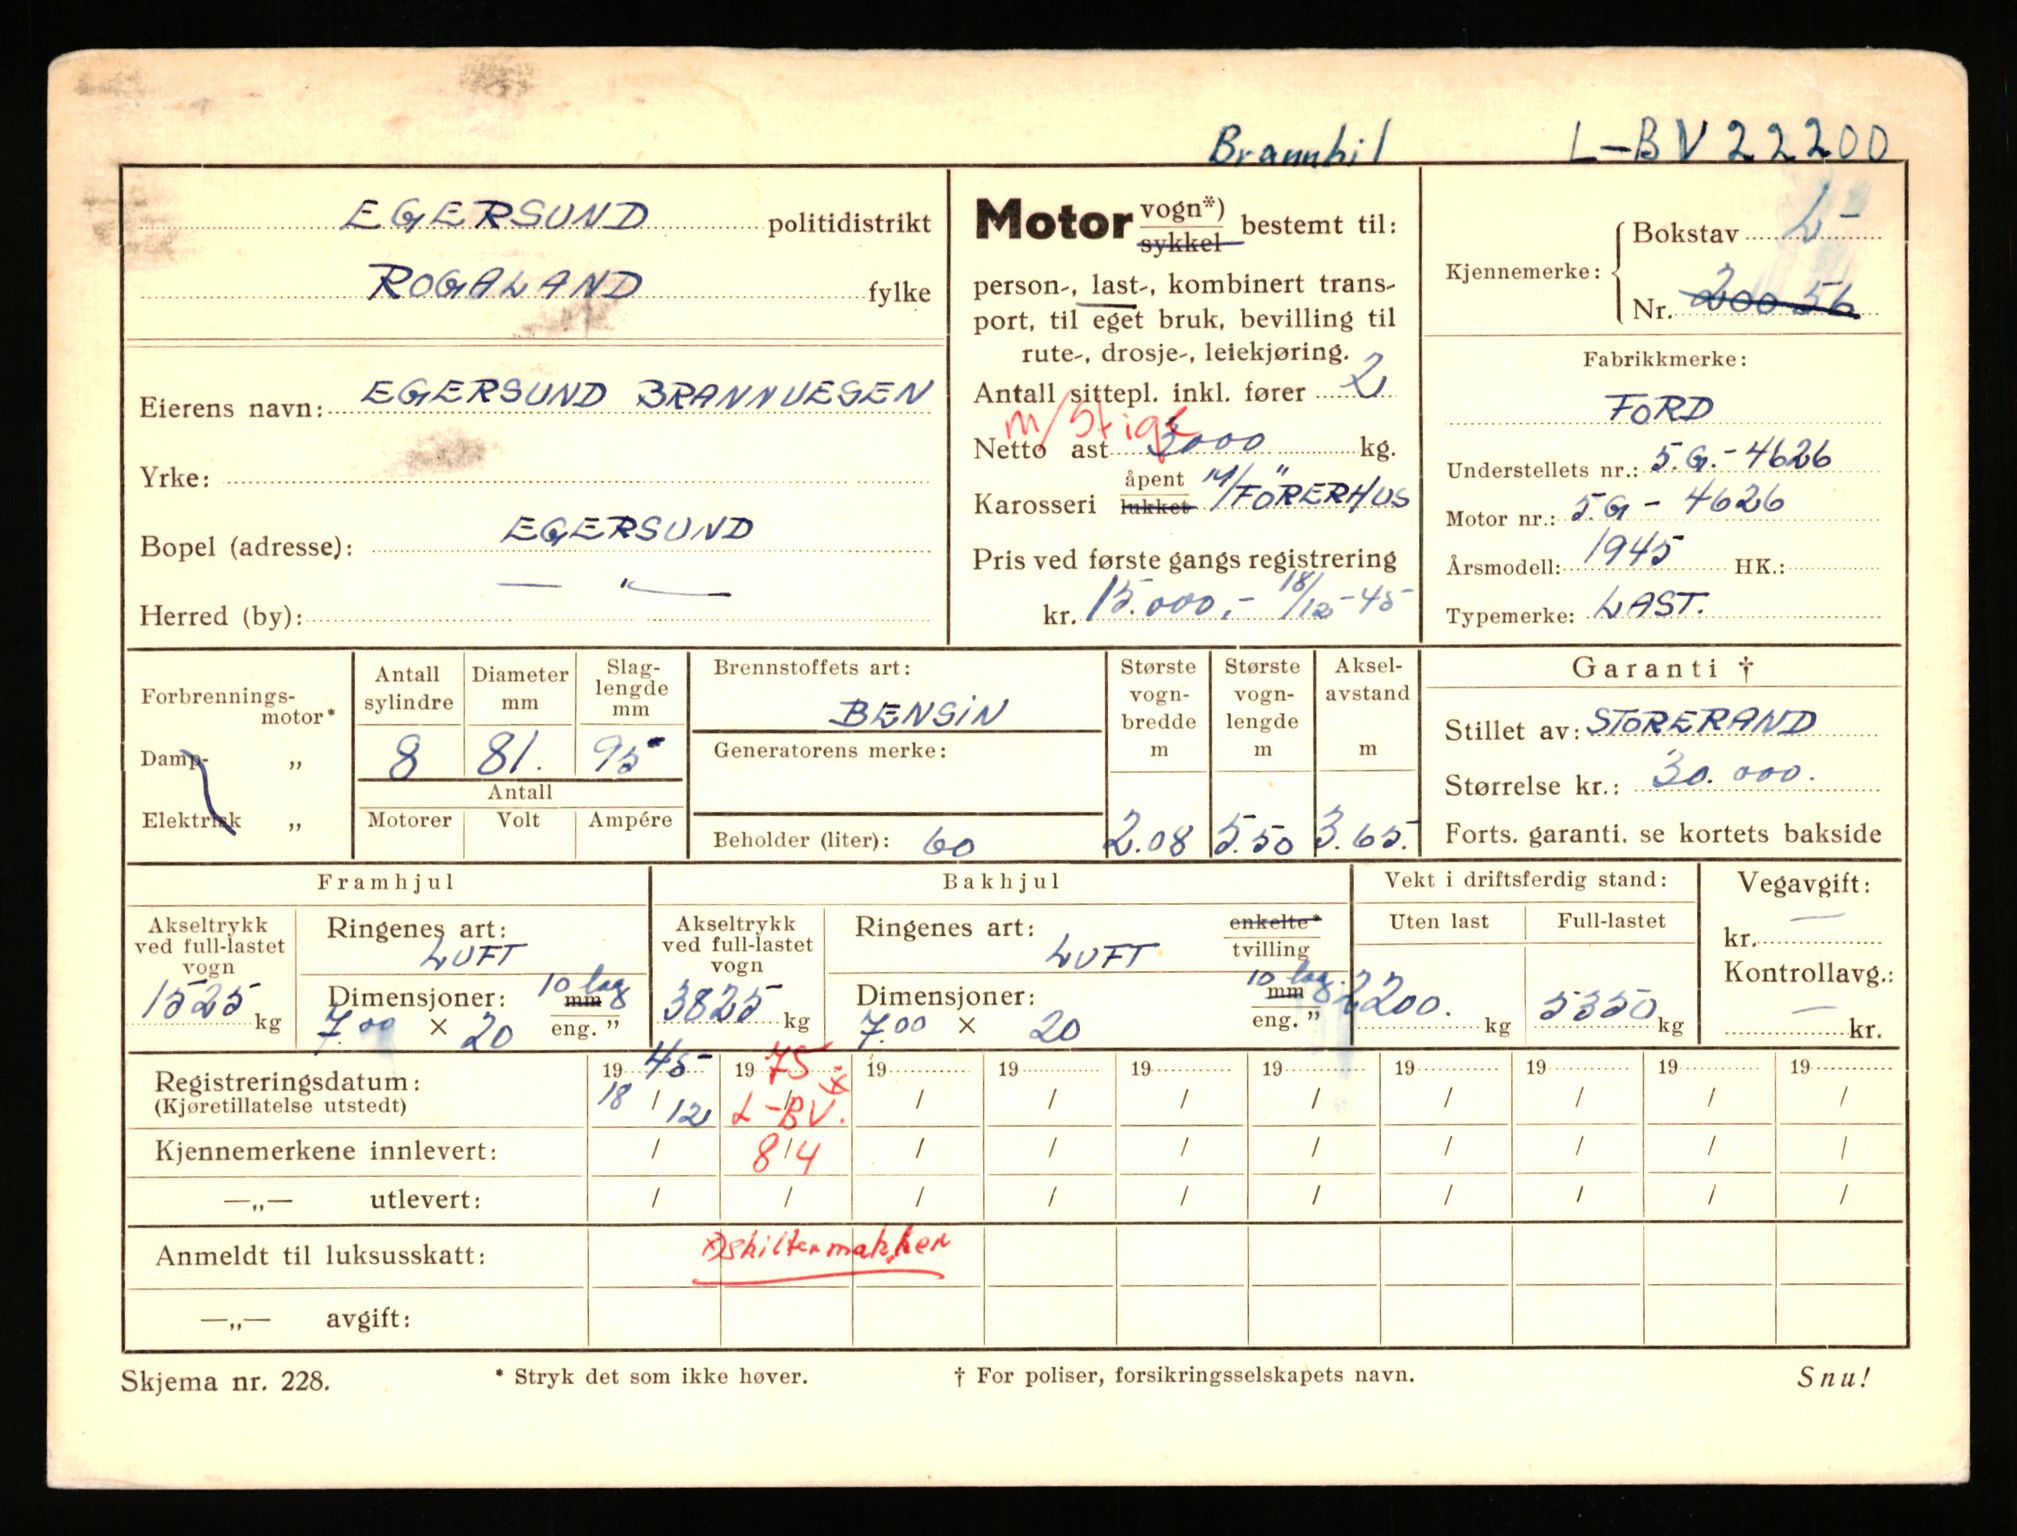 Brannbil L-BV 22200
EGERSUND politidistrikt
ROGALAND fylke
Eierens navn: EGERSUND BRANNVESEN
Yrke:
Bopel (adresse): EGERSUND
Herred (by): — " —
Motor vogn*) sykkel bestemt til:
person-, last-, kombinert trans-
port, til eget bruk, bevilling til
rute-, drosje-, leiekjøring.
Antall sittepl. inkl. fører 2
m/Stige
Netto last 3000 kg.
Karosseri åpent lukket M/FÖRERHUS
Pris ved første gangs registrering
kr. 15.000,- 18/12-45
Kjennemerke: Bokstav L-
Nr. 20056
Fabrikkmerke:
FORD
Understellets nr.: 5.G.-4626
Motor nr.: 5.G-4626
Årsmodell: 1945 HK.:
Typemerke: LAST.
Forbrennings-
motor*
Damp- „
Elektrisk „
Antall sylindre
8
Diameter mm
81.
Slag-
lengde
mm
95
Antall
Motorer Volt Ampére
Brennstoffets art:
BENSIN
Generatorens merke:
Beholder (liter): 60
Største
vogn-
bredde
m
2.08
Største
vogn-
lengde
m
5.50
Aksel-
avstand
m
3.65.
Garanti †
Stillet av: STOREBRAND
Størrelse kr.: 30.000.
Forts. garanti. se kortets bakside
Framhjul
Akseltrykk
ved full-lastet
vogn
1525 kg
Ringenes art:
LUFT
Dimensjoner: 10 lag mm
7.00 × 20 eng. ”
Bakhjul
Akseltrykk
ved full-lastet
vogn
3825 kg
Ringenes art: enkelte*
LUFT tvilling
Dimensjoner: 10 lag. mm
7.00 × 20 eng. ”
Vekt i driftsferdig stand:
Uten last Full-lastet
2200. kg 5350 kg
Vegavgift:
kr. —
Kontrollavg.:
— kr.
Registreringsdatum: 1945 1975 19 19 19 19 19 19 19 19
(Kjøretillatelse utstedt) 18/12 L-BV. x / / / / / / / /
Kjennemerkene innlevert: / 8/4 / / / / / / / /
—„— utlevert: / / / / / / / / / /
Anmeldt til luksusskatt: x) skiltermakker
—„— avgift:
Skjema nr. 228. * Stryk det som ikke høver. † For poliser, forsikringsselskapets navn. Snu!